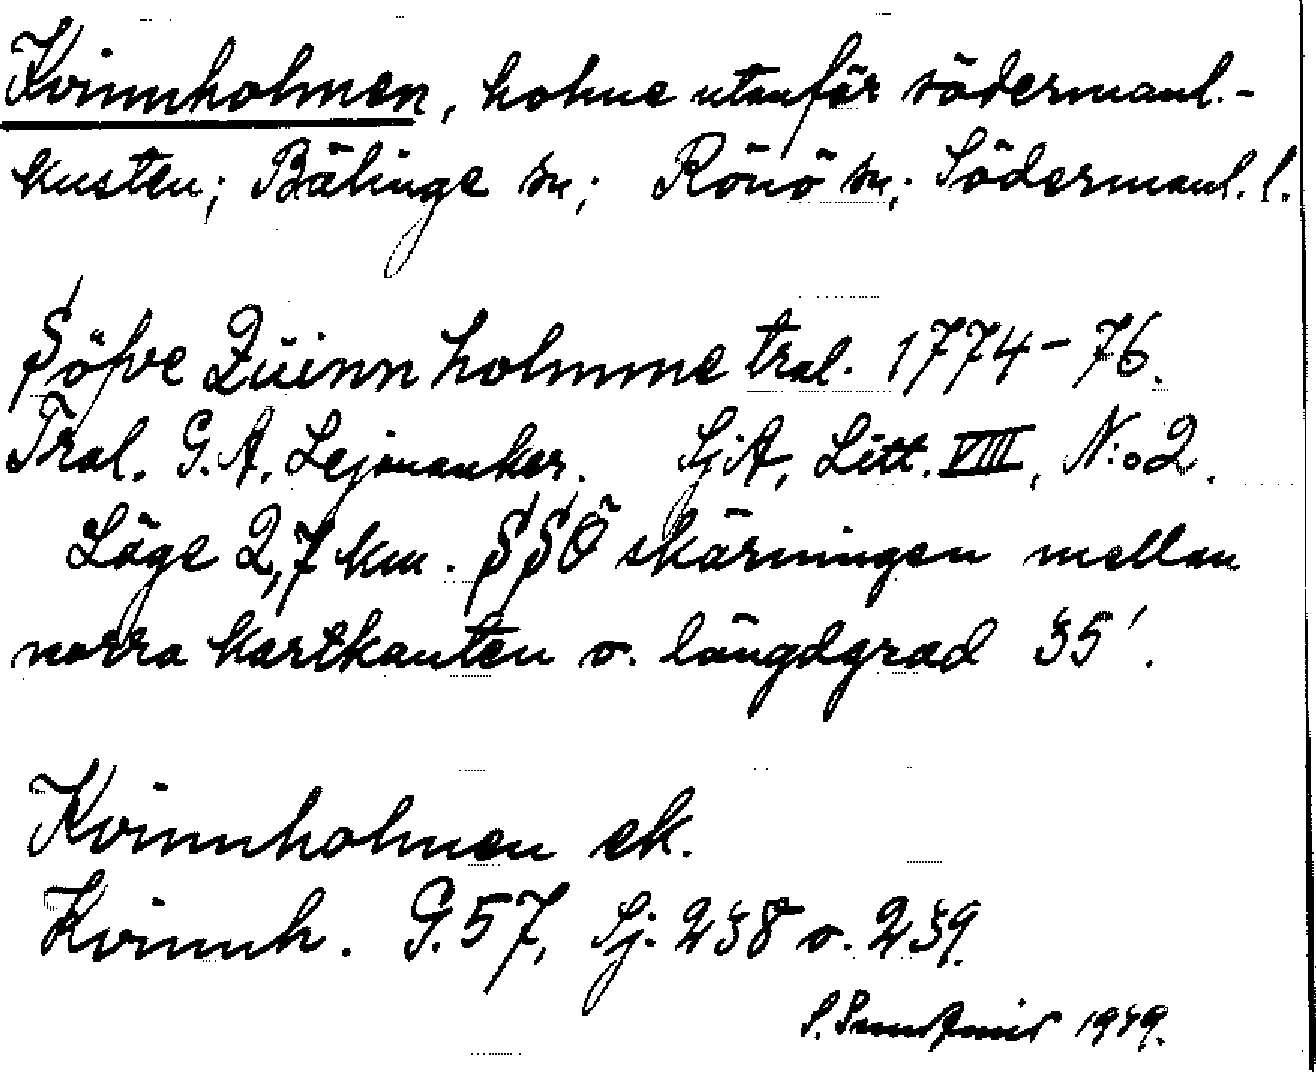 Kvinnholmen, holme utanför södermanl.-
kusten; Bälinge sn; Rönö sn; Södermanl. l.
Söfve Qüinn holmme tral. 1774-76.
Tral. G.A. Lejonanker. SjA, Litt. VIII, N:o 2.
Läge 2,7 km. SSÖ skärningen mellan
norra kartkanten o. längdgrad 35'.
Kvinnholmen ek.
Kvinnh. G. 57, Sj. 238 o. 239.
S. 1949.